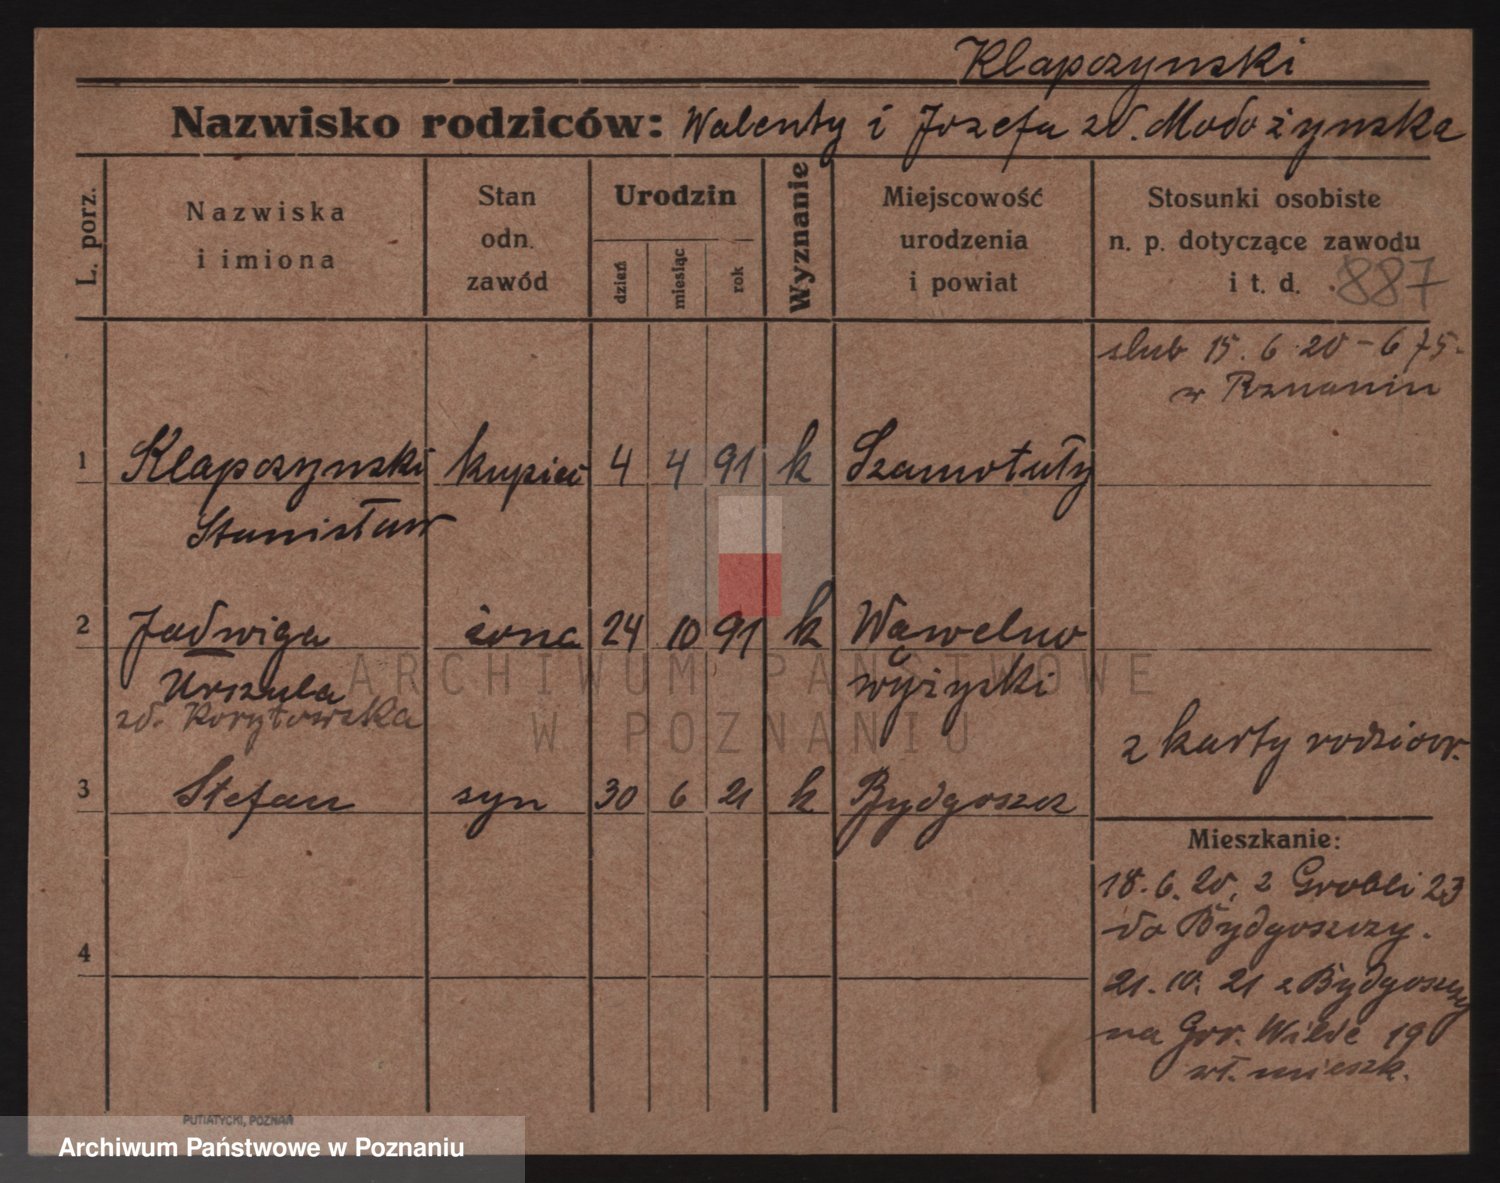 Klapczynski
Nazwisko rodziców: Walenty i Jozefa zd. Modożynska
L. porz.
Nazwiska
i imiona
Stan
odn.
zawód
Urodzin
dzień
miesiąc
rok
Wyznanie
Miejscowość
urodzenia
i powiat
Stosunki osobiste
n. p. dotyczące zawodu
i t. d. 887
slub 15. 6 20 - 675.
w Poznaniu
1 Klapczynski kupiec 4 4 91 k Szamotuły
Stanisław
2 Jadwiga żona 24 10 91 k Wąwelno
Urszula wyżyski
zd. Korytowska
z karty rodziców.
3 Stefan syn 30 6 21 k Bydgoszcz
Mieszkanie:
18. 6. 20, z Grobli 23
do Bydgoszczy.
4
21. 10. 21 z Bydgoszczy
na Gór. Wilde 19
wł. mieszk.
ARCHIWUM PAŃSTWOWE
W POZNANIU
PUTIATYCKI, POZNAŃ
Archiwum Państwowe w Poznaniu